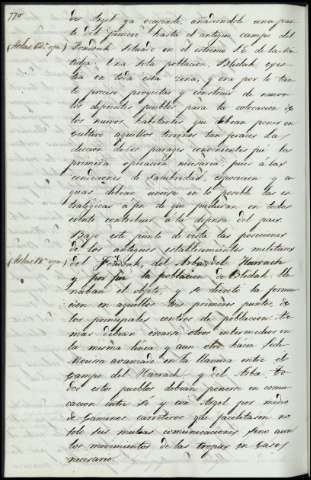 770
de Argel ya ocupado, añadiendole una par-
te del hasta el antiguo campo del
(Hoja 12.ª)
Fondouk situado en el estremo S.E. de la Me-
tidja. Una sola poblacion Blidah exis-
tia en toda esta zona, y era por lo tan-
to preciso proyectar y construir de nuevo
los diferentes pueblos para la colocacion de
los nuevos habitantes que debian poner en
cultivo aquellos terrenos tan feraces. La
eleccion de los parages convenientes fue la
primera operacion necesaria, pues á las
condiciones de salubridad, esposicion y a-
guas debian unirse en lo posible las es-
tratégicas á fin de que pudieran en todo
evento contribuir á la defensa del pais.
Bajo este punto de vista las posiciones
de los antiguos establecimientos militares
(Hoja 12.ª)
del Fondouk, del Arba, del Harrach
y por fin la poblacion de Blidah lle-
naban el objeto, y se decretó la forma-
cion en aquellos tres primeros puntos, de
los principales centros de poblacion. Ade-
mas debian crearse otros intermedios en
la misma linea, y aun otro hacia Sidi-
Moussa avanzado en la llanura entre el
Campo del Harrach y del Arba. To-
dos estos pueblos debian ponerse en comu-
nicacion entre si y con Argel por medio
de Caminos carreteros que facilitasen no
solo sus mutuas comunicaciones sino aun
los movimientos de las tropas en caso
necesario.